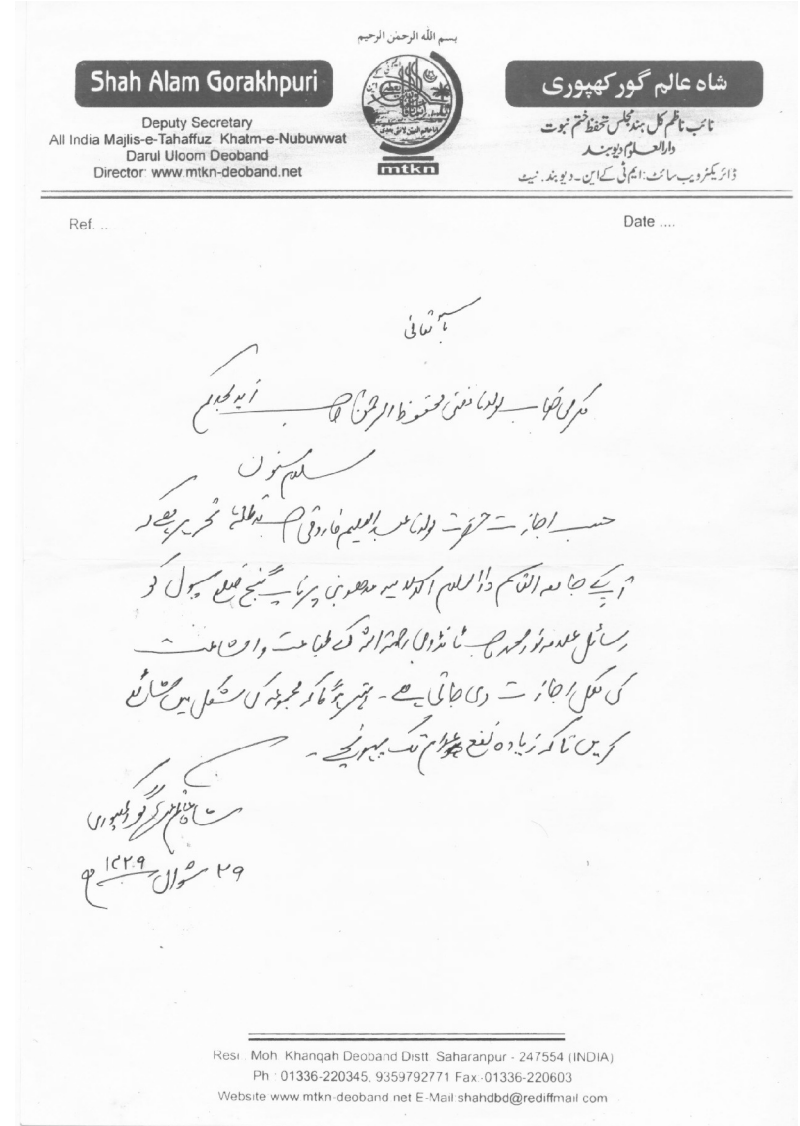 بسم الله الرحمٰن الرحیم
Shah Alam Gorakhpuri
شاہ عالم گورکھپوری
Deputy Secretary
All India Majlis-e-Tahaffuz Khatm-e-Nubuwwat
Darul Uloom Deoband
Director: www.mtkn-deoband.net
نائب ناظم کل ہند مجلس تحفظ ختم نبوت
دارالعلوم دیوبند
ڈائریکٹر ویب سائٹ: ایم ٹی کے این۔ دیوبند. نیٹ
mtkn
Ref. ..
Date ....
باسمہ تعالیٰ
مکرمی جناب مولانا مفتی محفوظ الرحمن صاحب زید مجدکم
سلام مسنون
حسب اجازت حضرت مولانا عبد العلیم فاروقی صاحب مدظلہ تحریر ہے کہ
آپکے جامعہ القاسم دارالعلوم الاسلامیہ مدھوبنی پرتاپ گنج ضلع سپول کو
رسائل علامہ نور محمد صاحب ٹانڈوی رحمۃ اللہ کے طباعت و اشاعت
کی مکمل اجازت دی جاتی ہے۔ بہتر ہوگا کہ مجموعہ کی شکل میں شائع
کریں تاکہ زیادہ نفع عوام تک پہونچے۔
شاہ عالم گورکھپوری
۲۹ شوال ۱۴۲۹ھ
Resi : Moh Khanqah Deoband Distt Saharanpur - 247554 (INDIA)
Ph : 01336-220345, 9359792771 Fax:-01336-220603
Website www mtkn-deoband net E-Mail shahdbd@rediffmail com